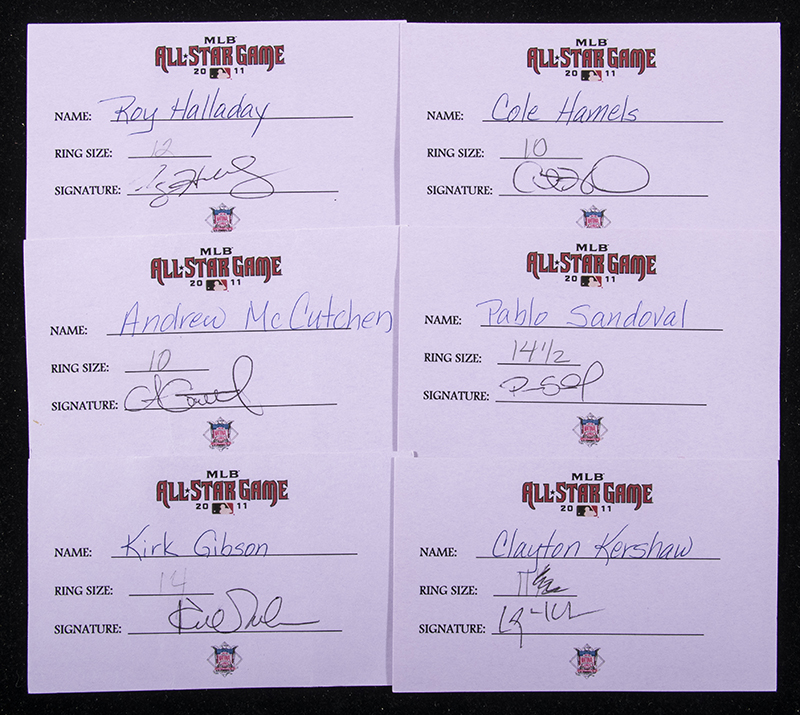 MLB
ALL★STAR GAME
20 11
NAME: Roy Halladay
RING SIZE: 12
SIGNATURE:
MLB
ALL★STAR GAME
20 11
NAME: Cole Hamels
RING SIZE: 10
SIGNATURE:
MLB
ALL★STAR GAME
20 11
NAME: Andrew McCutchen
RING SIZE: 10
SIGNATURE:
MLB
ALL★STAR GAME
20 11
NAME: Pablo Sandoval
RING SIZE: 14 1/2
SIGNATURE:
MLB
ALL★STAR GAME
20 11
NAME: Kirk Gibson
RING SIZE: 14
SIGNATURE:
MLB
ALL★STAR GAME
20 11
NAME: Clayton Kershaw
RING SIZE: 11
SIGNATURE: